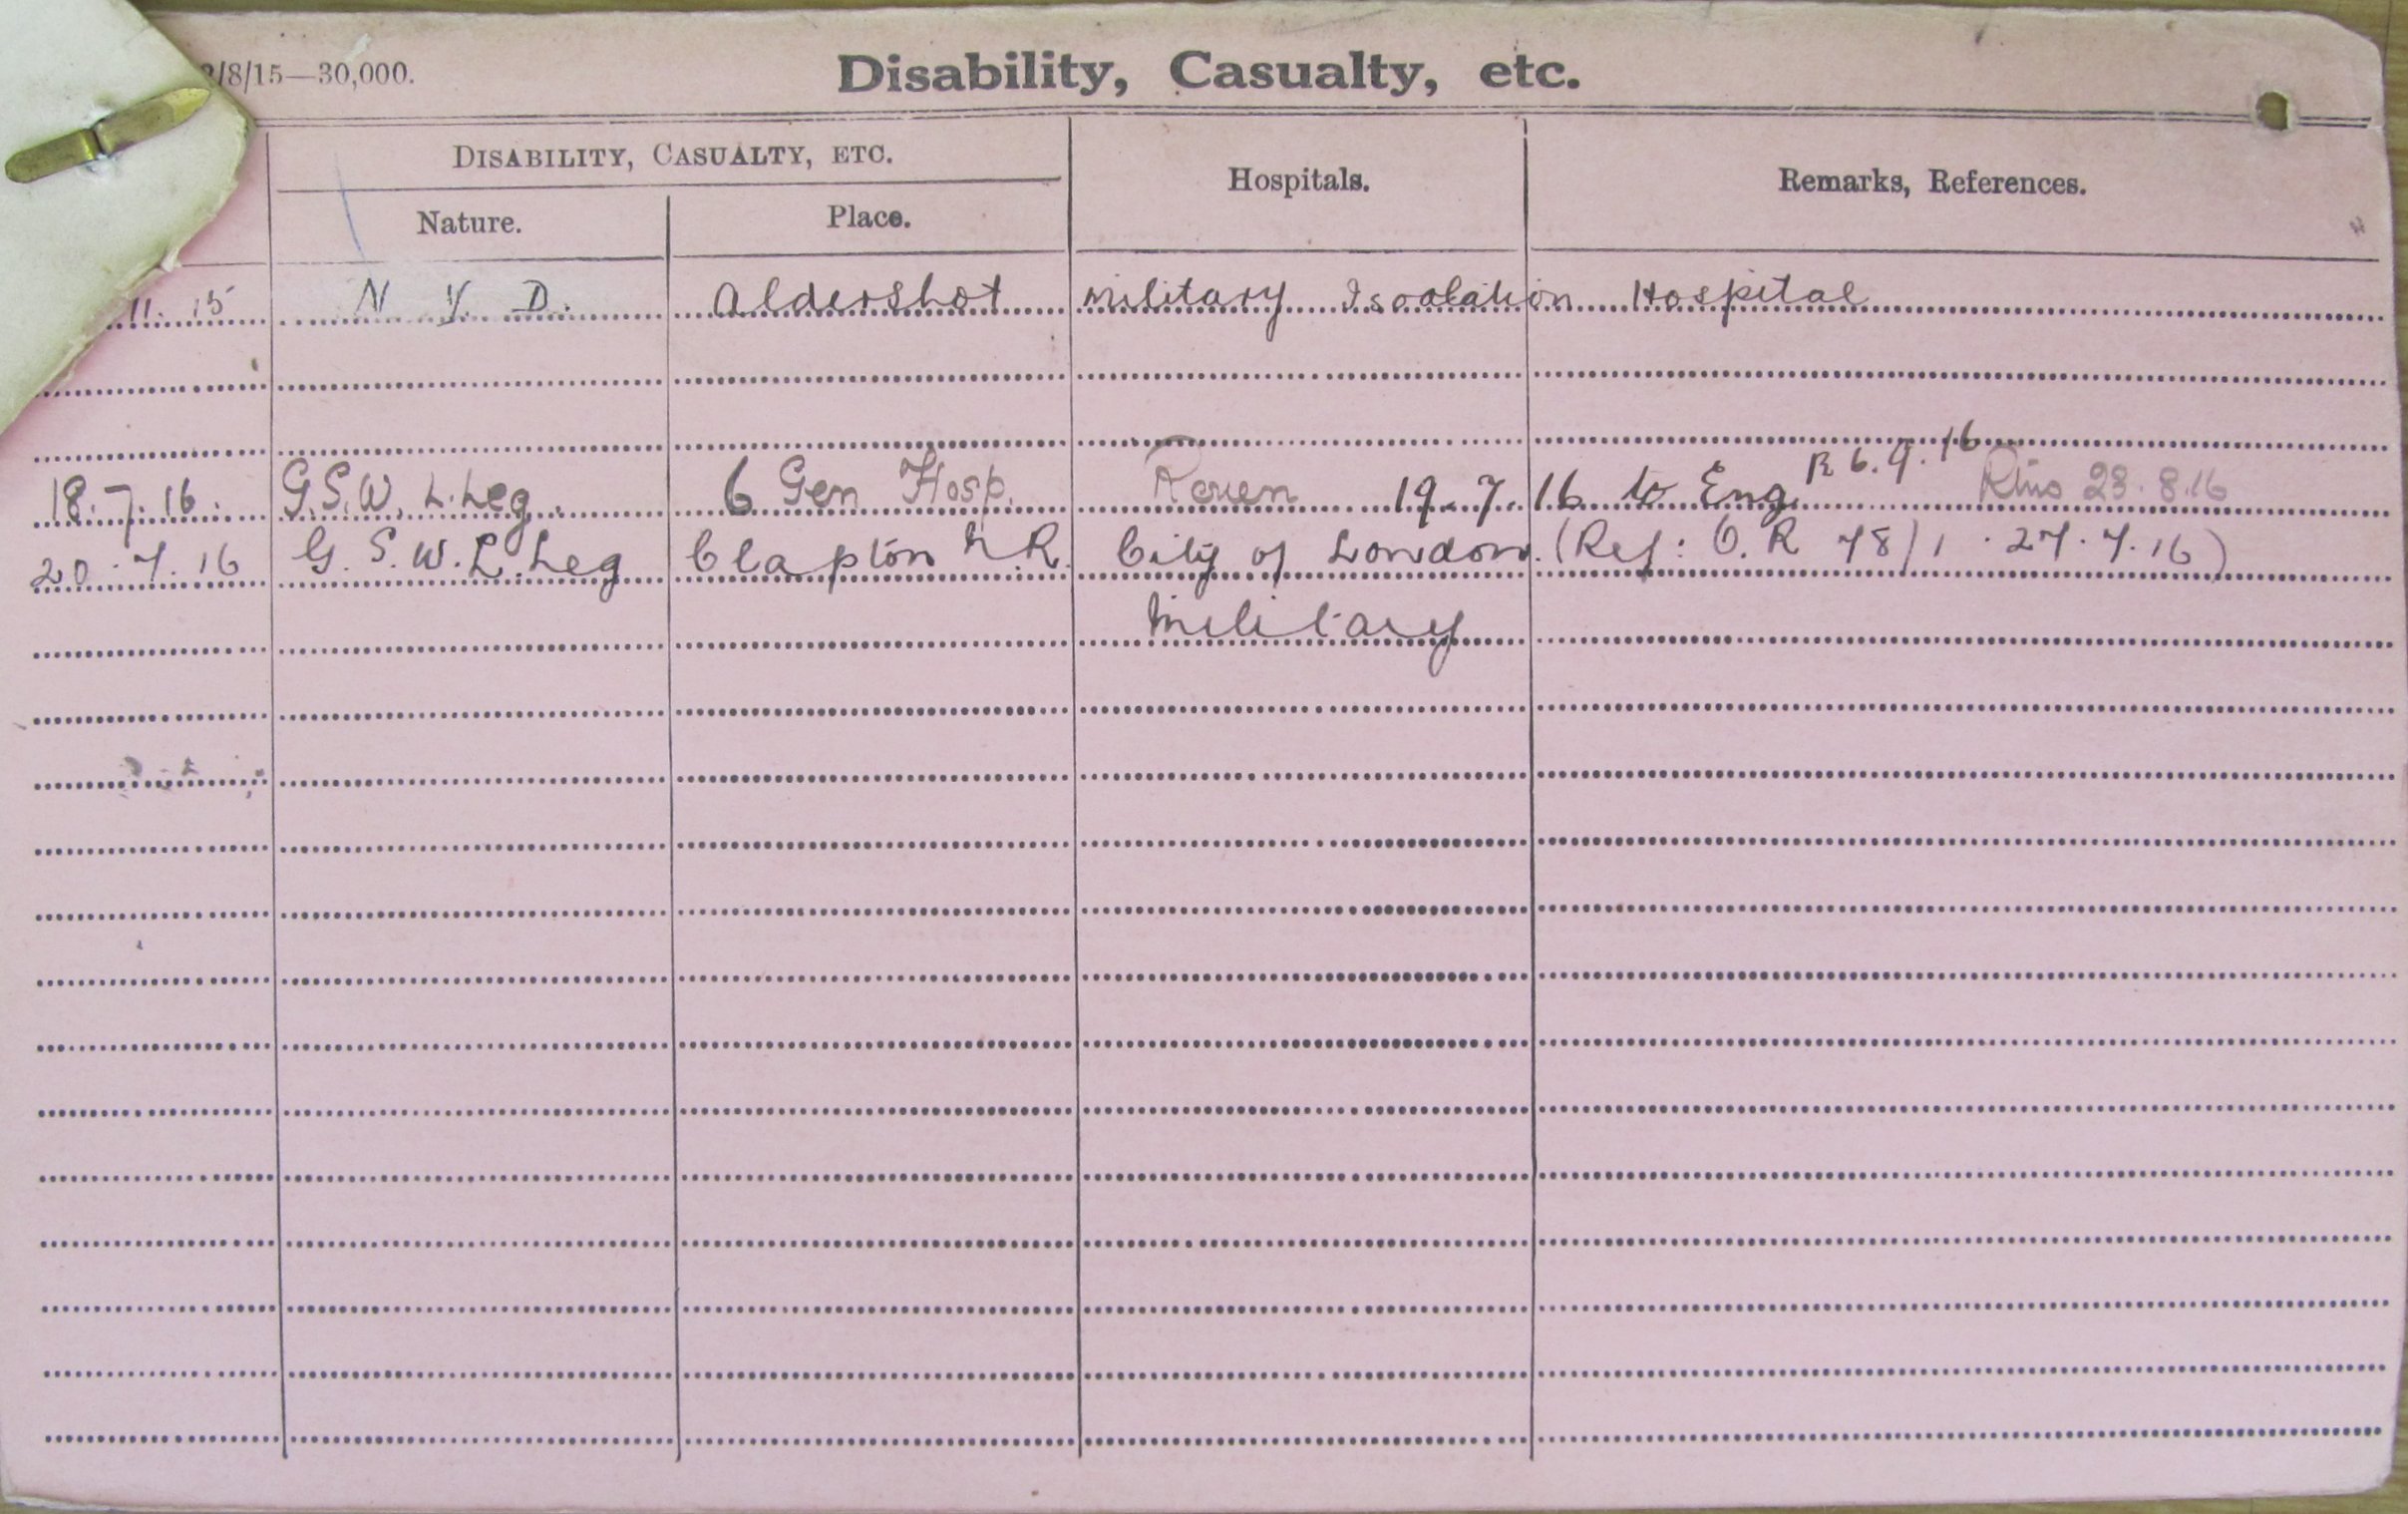 /8/15—30,000.
Disability, Casualty, etc.
DISABILITY, CASUALTY, ETC.
Hospitals.
Remarks, References.
Nature.
Place.
11. 15 N. Y. D. Aldershot Military Isolation Hospital
R 6.9.16
18.7.16. G.S.W. L. Leg. 6 Gen Hosp. Rouen 19.7.16 to Eng. 28.8.16
20.7.16 G.S.W. L. Leg Clapton N.R. City of London. (Ref: O.R 78/1 . 27.7.16)
Military